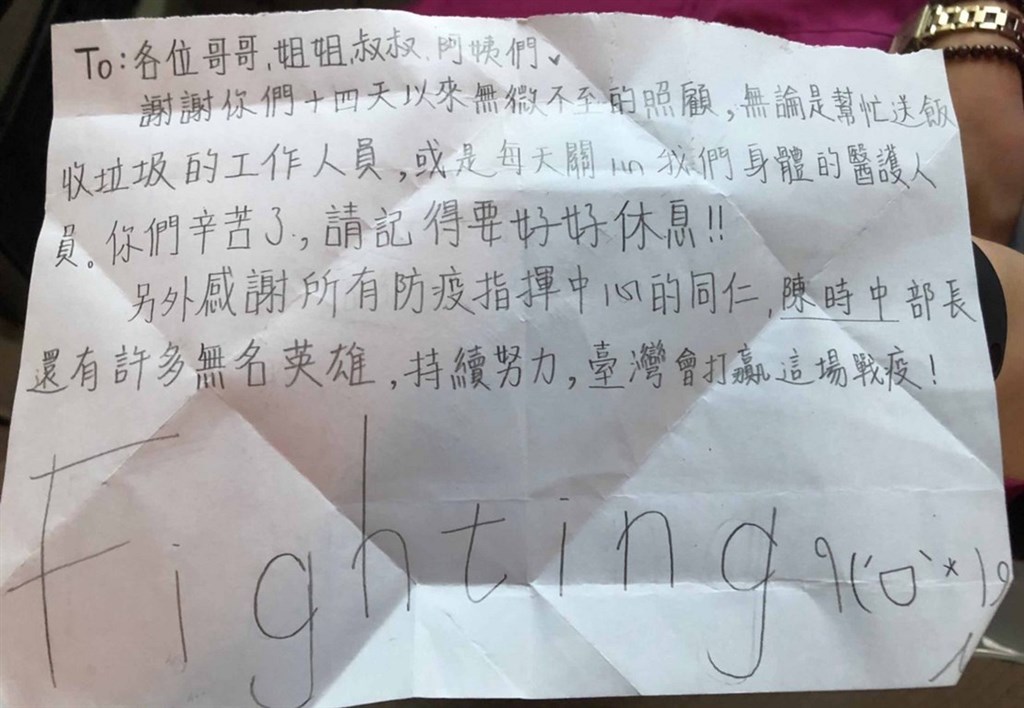 To:各位哥哥,姐姐,叔叔,阿姨們、
謝謝你們十四天以來無微不至的照顧,無論是幫忙送飯
收垃圾的工作人員,或是每天關心我們身體的醫護人
員。你們辛苦了,請記得要好好休息!!
另外感謝所有防疫指揮中心的同仁,陳時中部長
還有許多無名英雄,持續努力,臺灣會打贏這場戰疫!
Fighting ٩(´ㅁ`*)۶